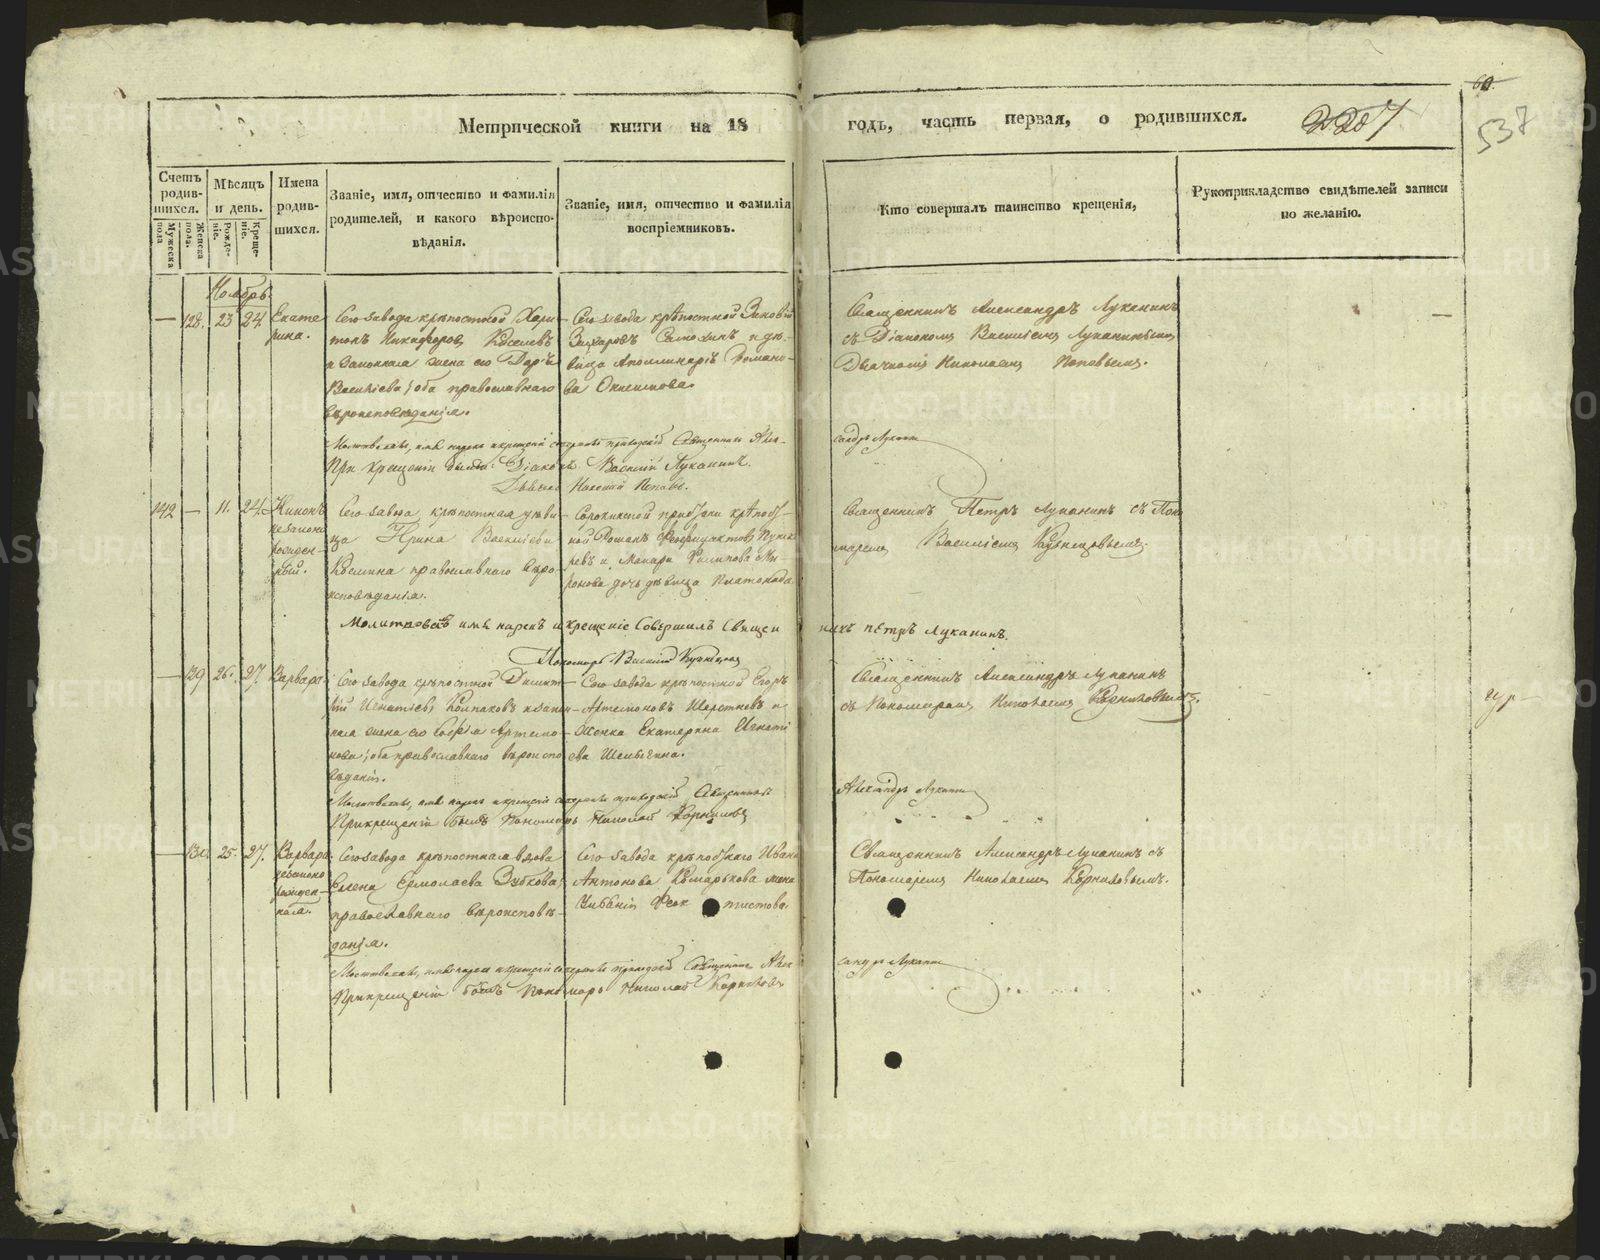 Метрической книги на 18 годъ, часть первая, о родившихся.
2207
60.
537
Счетъ родившихся.
Мужеска пола
Женска пола.
Мѣсяцъ и день.
Рожденіе.
Крещеніе.
Имена родившихся.
Званіе, имя, отчество и фамилія родителей, и какого вѣроисповѣданія.
Званіе, имя, отчество и фамилія воспріемниковъ.
Кто совершалъ таинство крещенія,
Рукоприкладство свидѣтелей записи по желанію.
Ноябрь.
— 128. 23 24. Екате
рина.
Сего завода крѣпостной Хари-
тонъ Никифоровъ Киселевъ
и законная жена его Дарья
Василіева; оба православнаго
вѣроисповѣданія.
Сего завода крѣпостной Зиновій
Захаровъ и дѣ-
вица Аполлинарія Романо-
ва
Священникъ Александръ Луканинъ
съ Діакономъ Василіемъ Луканинымъ
Дьячкомъ Николаемъ Поповымъ.
—
имя нарекъ и крещеніе совершилъ приходскій Священникъ Алек-
сандръ Луканинъ
При крещеніи были: Діаконъ Василій Луканинъ.
142 — 11. 24. Никонъ
незаконо
рожден-
ный.
Сего завода крѣпостная дѣви-
ца Ирина Василіева
православнаго вѣро-
исповѣданія.
дочь дѣвица Платонида
Священникъ Петръ Луканинъ съ Поно
маремъ Василіемъ Кузнецовымъ.
Молитвовалъ имя нарекъ и крещеніе Совершилъ Священникъ Петръ Луканинъ.
Пономарь Василій Кузнецовъ
— 129 26. 27. Варвара
Сего завода крѣпостной Димит-
рій Игнатіевъ Колпаковъ и закон-
ная жена его Софія Артемо-
нова; оба православнаго вѣроиспо
вѣданія.
Сего завода крѣпостной Егоръ
Артемоновъ Шерстневъ и
женка Екатерина Игнаті
ева
Священникъ Александръ Луканинъ
съ Пономаремъ Николаемъ Корниловымъ.
имя нарекъ и крещеніе совершилъ приходскій Священникъ
Александръ Луканинъ
При крещеніи былъ Пономарь Николай Корниловъ
— 130. 25. 27. Варвара
незаконо
рожден-
ная.
Сего завода крѣпостная вдова
Елена Ермолаева Зубкова;
православнаго вѣроисповѣ-
данія.
Сего завода крѣпостнаго Ивана
Антонова Комарькова жена
Феоктистова.
Священникъ Александръ Луканинъ съ
Пономаремъ Николаемъ Корниловымъ.
имя нарекъ и крещеніе совершилъ приходскій Священникъ Алек
сандръ Луканинъ
При крещеніи былъ Пономарь Николай Корниловъ
METRIKI.GASO-URAL.RU